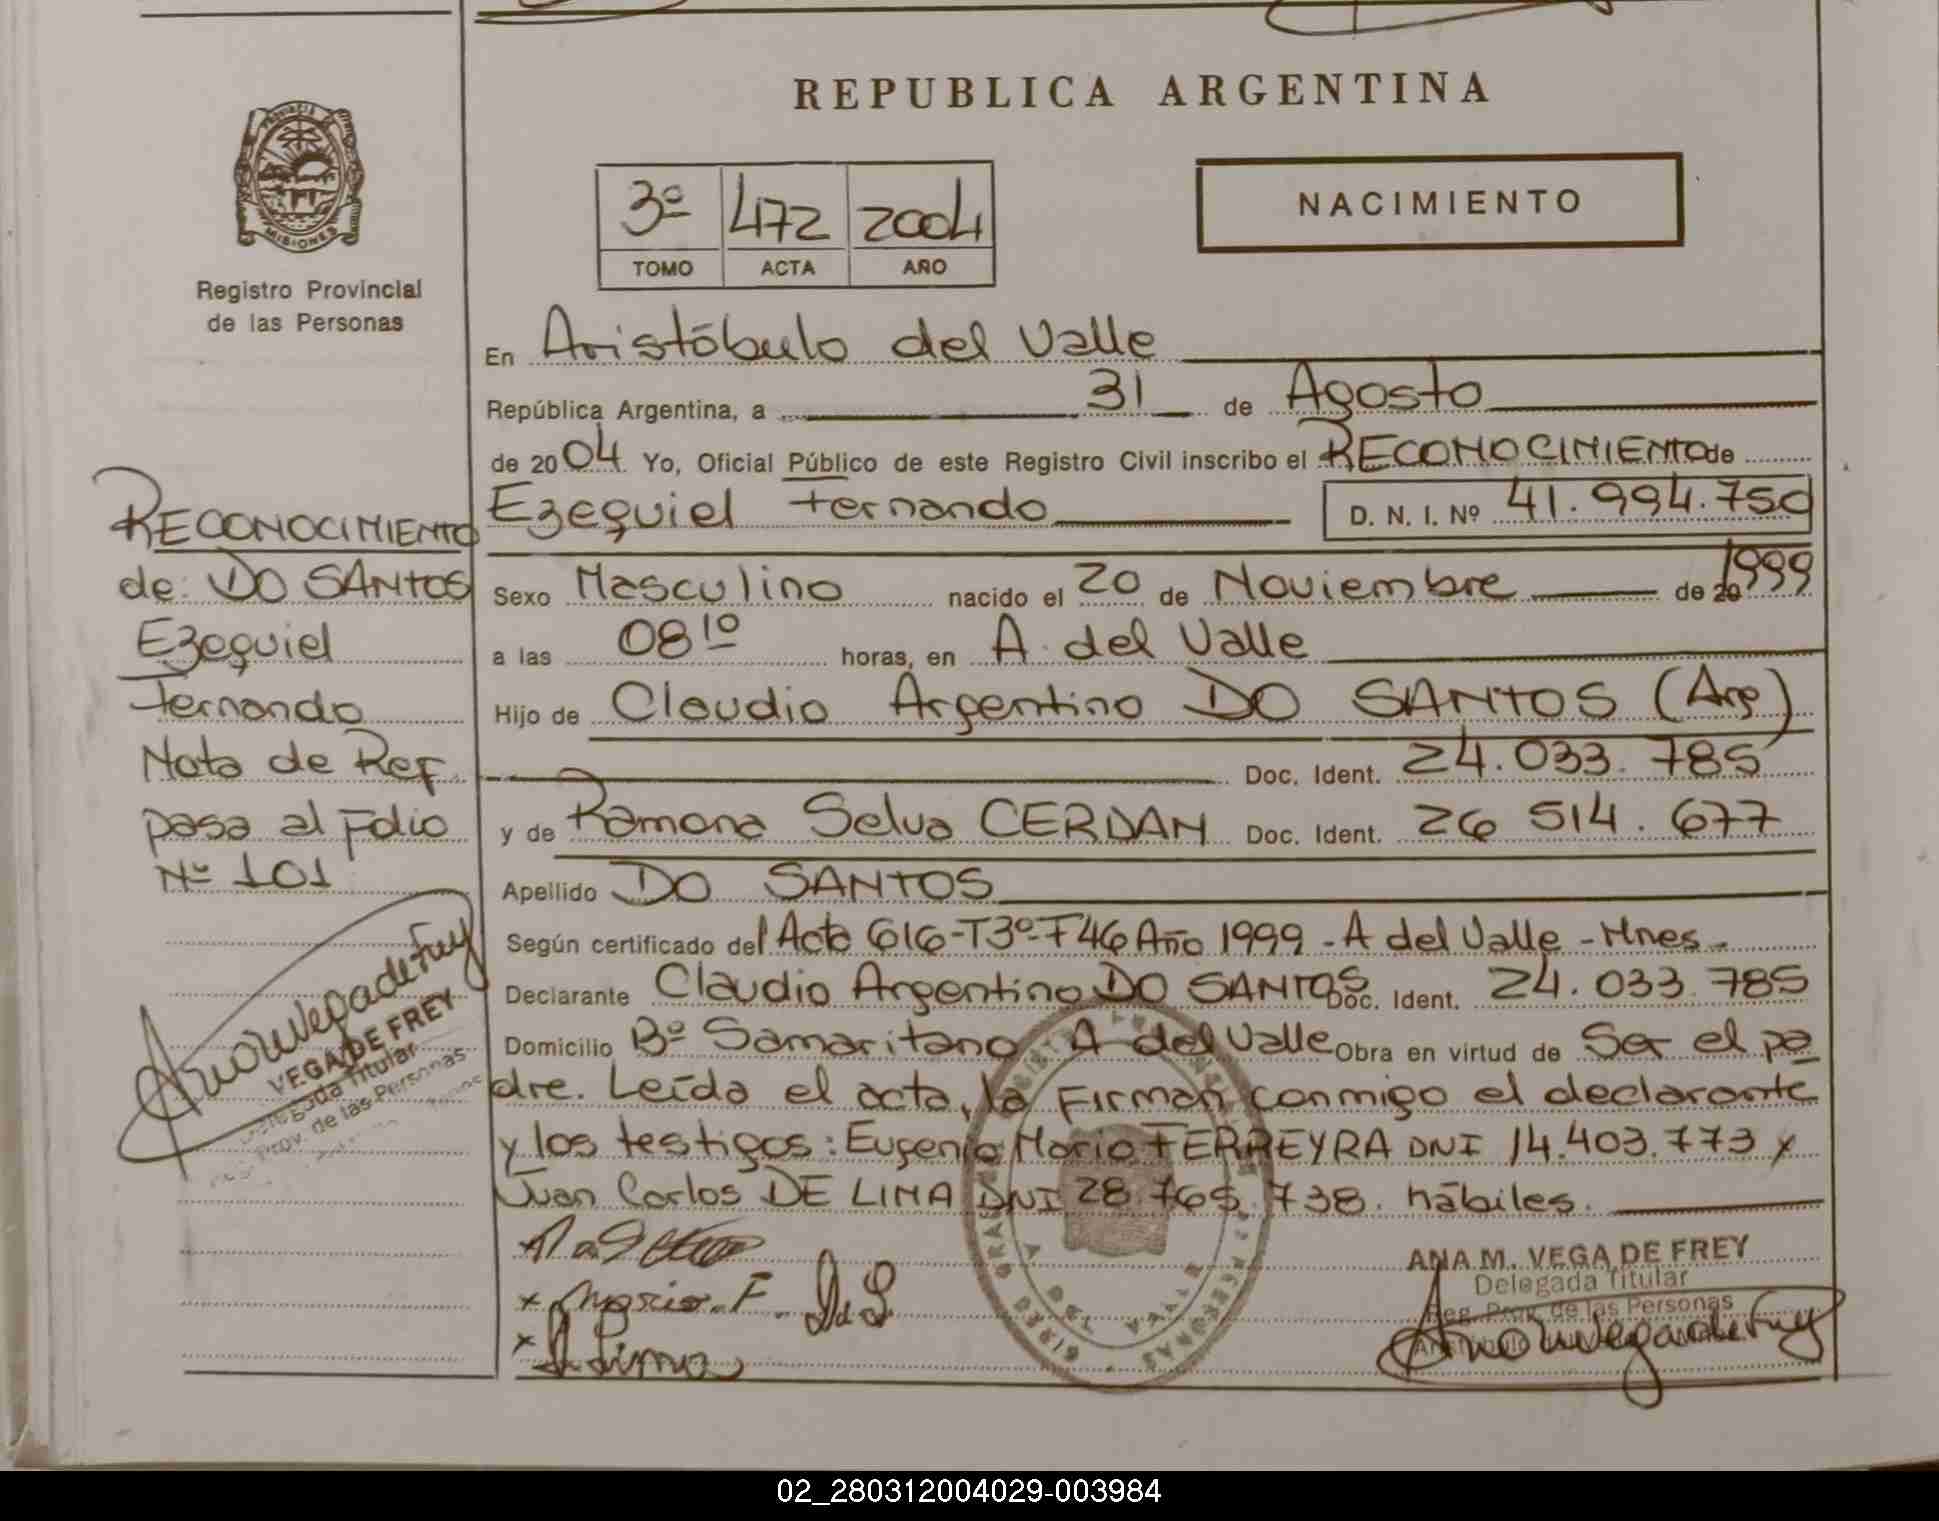 REPUBLICA ARGENTINA
PROVINCIA DE
MISIONES
Registro Provincial
de las Personas
3º 472 2004
TOMO ACTA AÑO
NACIMIENTO
En Aristóbulo del Valle
República Argentina, a 31 de Agosto
de 2004 Yo, Oficial Público de este Registro Civil inscribo el RECONOCIMIENTO de
Ezequiel Fernando D. N. I. Nº 41.994.750
Sexo Masculino nacido el 20 de Noviembre de 20 1999
a las 08 10 horas, en A. del Valle
Hijo de Claudio Argentino DO SANTOS (Arg)
Doc. Ident. 24.033.785
y de Ramona Selva CERDAN Doc. Ident. 26 514.677
Apellido DO SANTOS
Según certificado del Acta 616-T3º-F46 Año 1999 - A del Valle - Mnes.
Declarante Claudio Argentino DO SANTOS Doc. Ident. 24.033.785
Domicilio Bº Samaritano A del Valle Obra en virtud de Ser el pa
dre. Leída el acta, la Firman conmigo el declarante
y los testigos: Eugenio Mario FERREYRA DNI 14.403.773 y
Juan Carlos DE LIMA DNI 28.765.738. hábiles.
RECONOCIMIENTO
de: DO SANTOS
Ezequiel
Fernando
Nota de Ref
pasa al Folio
Nº 101
VEGA DE FREY
Delegada Titular
Prov. de las Personas
x Mario. F.
x Lima
ANA M. VEGA DE FREY
Delegada Titular
Reg. Prov. de las Personas
02_280312004029-003984